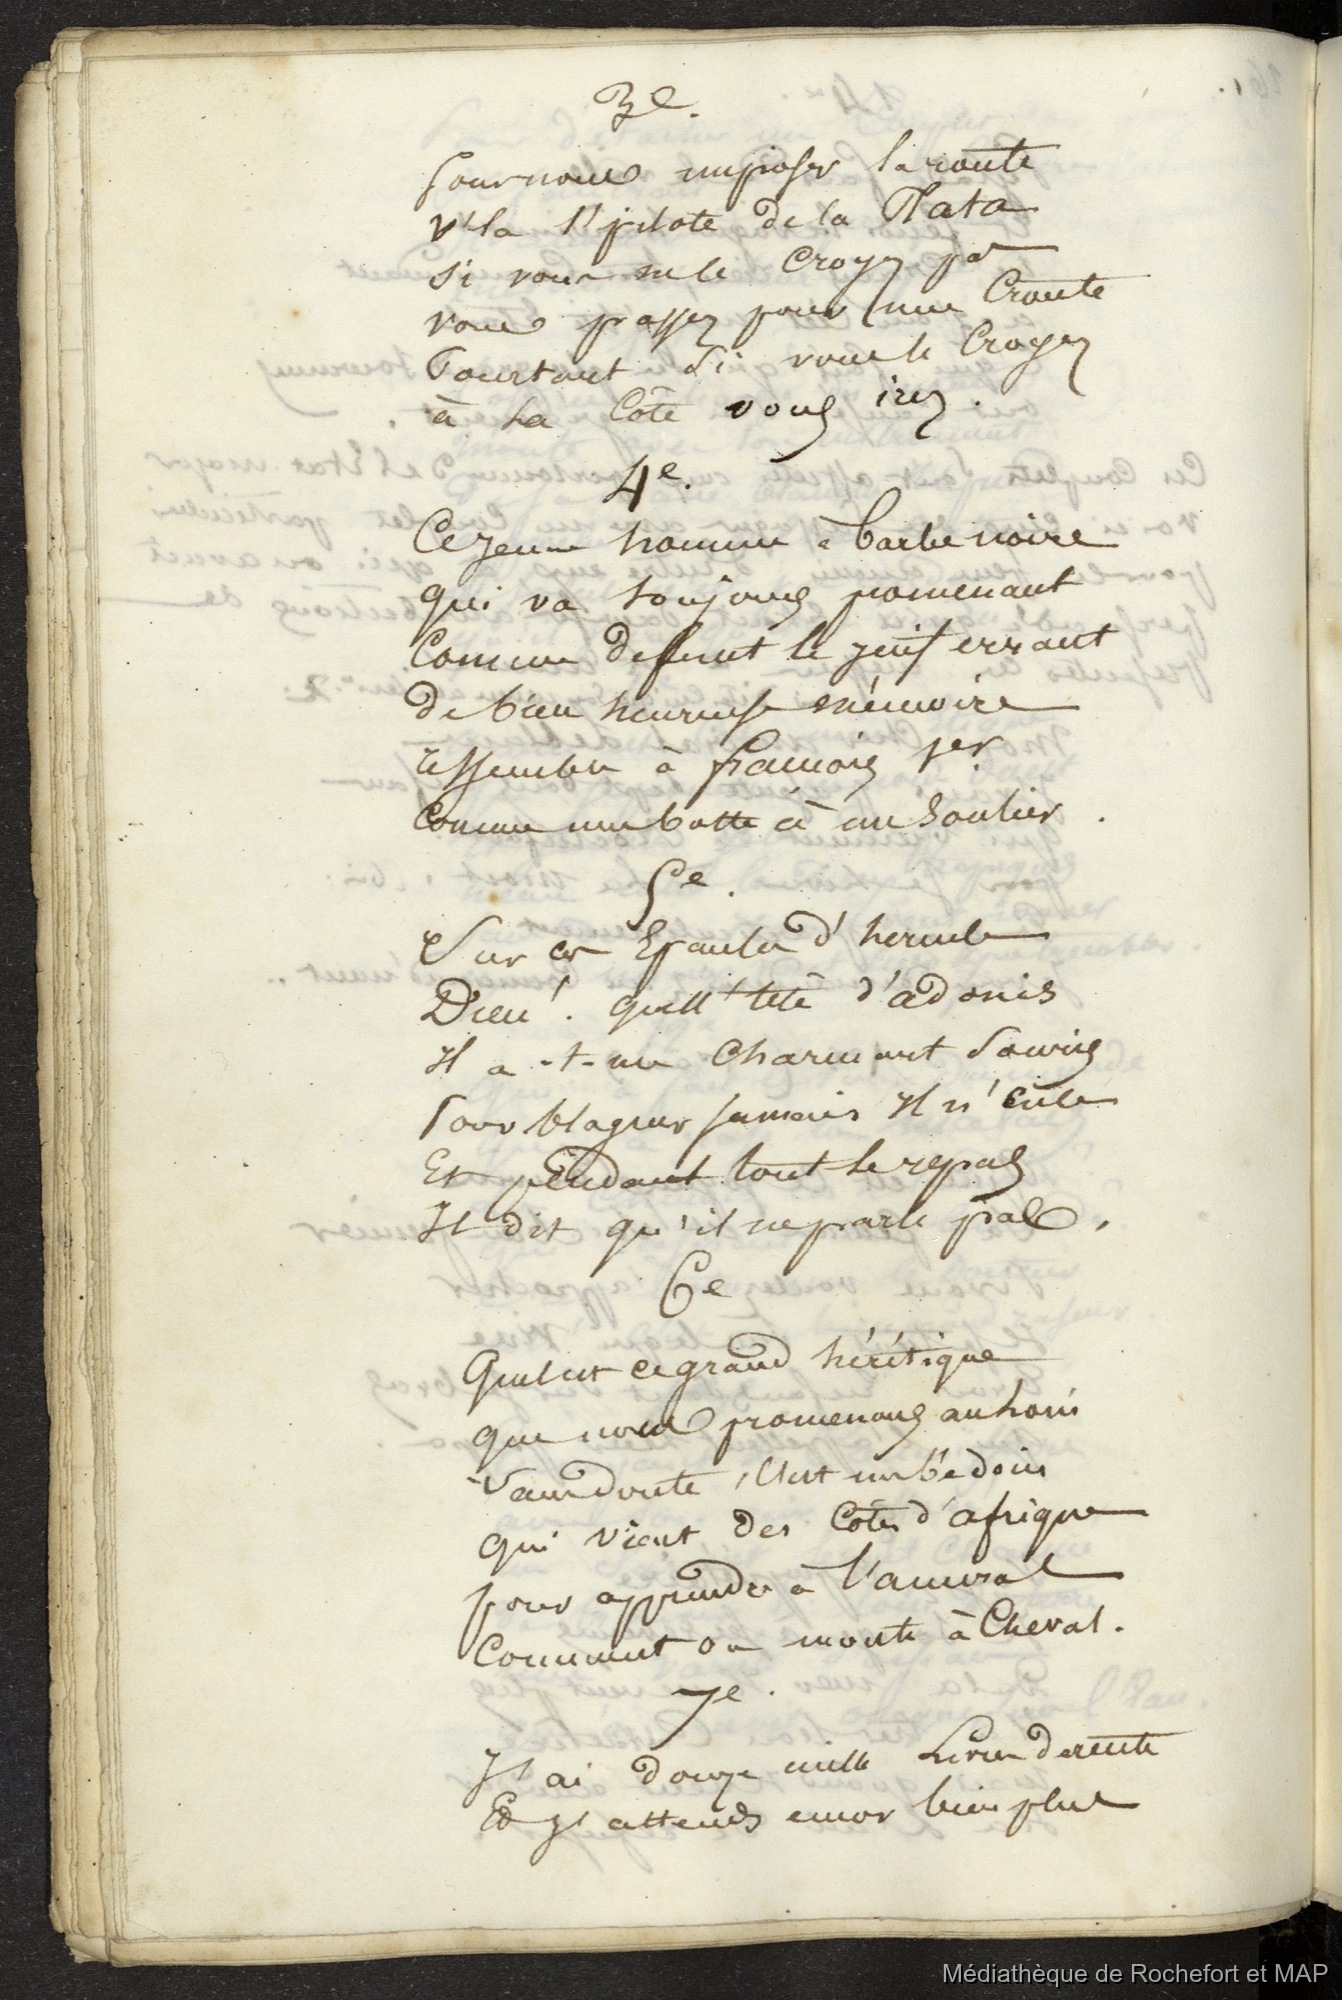 3e.
Pour nous imposer la route
v'la l'pilote de la Plata
si vous ne le croyez pas
vous passez pour une Croute
Pourtant si vous le Croyez
à la Côte vous irez.
4e.
Ce jeune homme à barbe noire
qui va toujours promenant
Comme defunt le juif errant
de bien heureuse mémoire
ressemble à francois 1er.
Comme une botte à un Soulier.
5e.
Sur ces Epaules d'hercule
Dieu! quell' tête d'adonis
Il a-t-un Charmant Souris
Pour blaguer jamais Il n'cule
Et pendant tout le repas
Il dit qu'il ne parle pas.
6e
Quel est ce grand hérétique
que nous promenons au loin
Sans doute, C'est un bédoin
qui vient des Côtes d'afrique
pour apprendre à l'amiral
Comment on monte à Cheval.
7e.
J'ai douze mille livres de rente
Et j'attends encor bien plus
Médiathèque de Rochefort et MAP